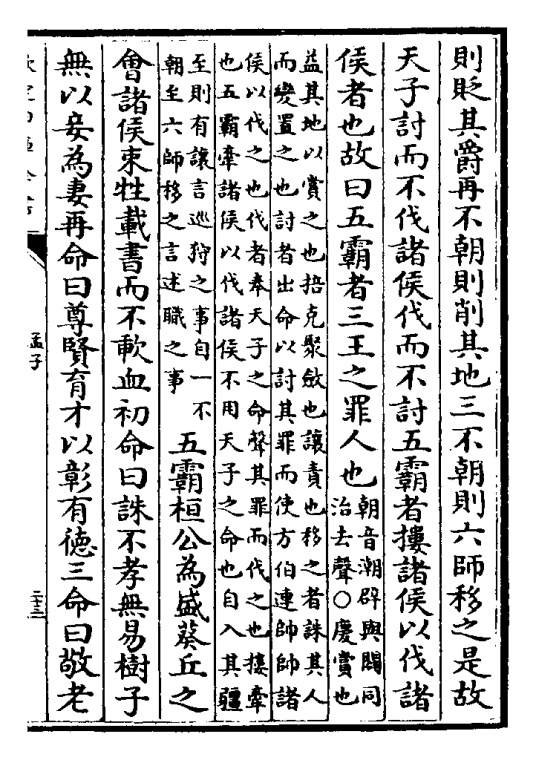 則貶其爵再不朝則削其地三不朝則六師移之是故
天子討而不伐諸侯伐而不討五霸者摟諸侯以伐諸
侯者也故曰五霸者三王之罪人也朝音潮辟與闢同
治去聲○慶賞也
益其地以賞之也掊克聚斂也讓責也移之者誅其人
而變置之也討者出命以討其罪而使方伯連帥帥諸
侯以伐之也伐者奉天子之命聲其罪而伐之也摟牽
也五霸牽諸侯以伐諸侯不用天子之命也自入其疆
至則有讓言巡狩之事自一不
朝至六師移之言述職之事
五霸桓公為盛葵丘之
會諸侯束牲載書而不歃血初命曰誅不孝無易樹子
無以妾為妻再命曰尊賢育才以彰有德三命曰敬老
孟子
二十三